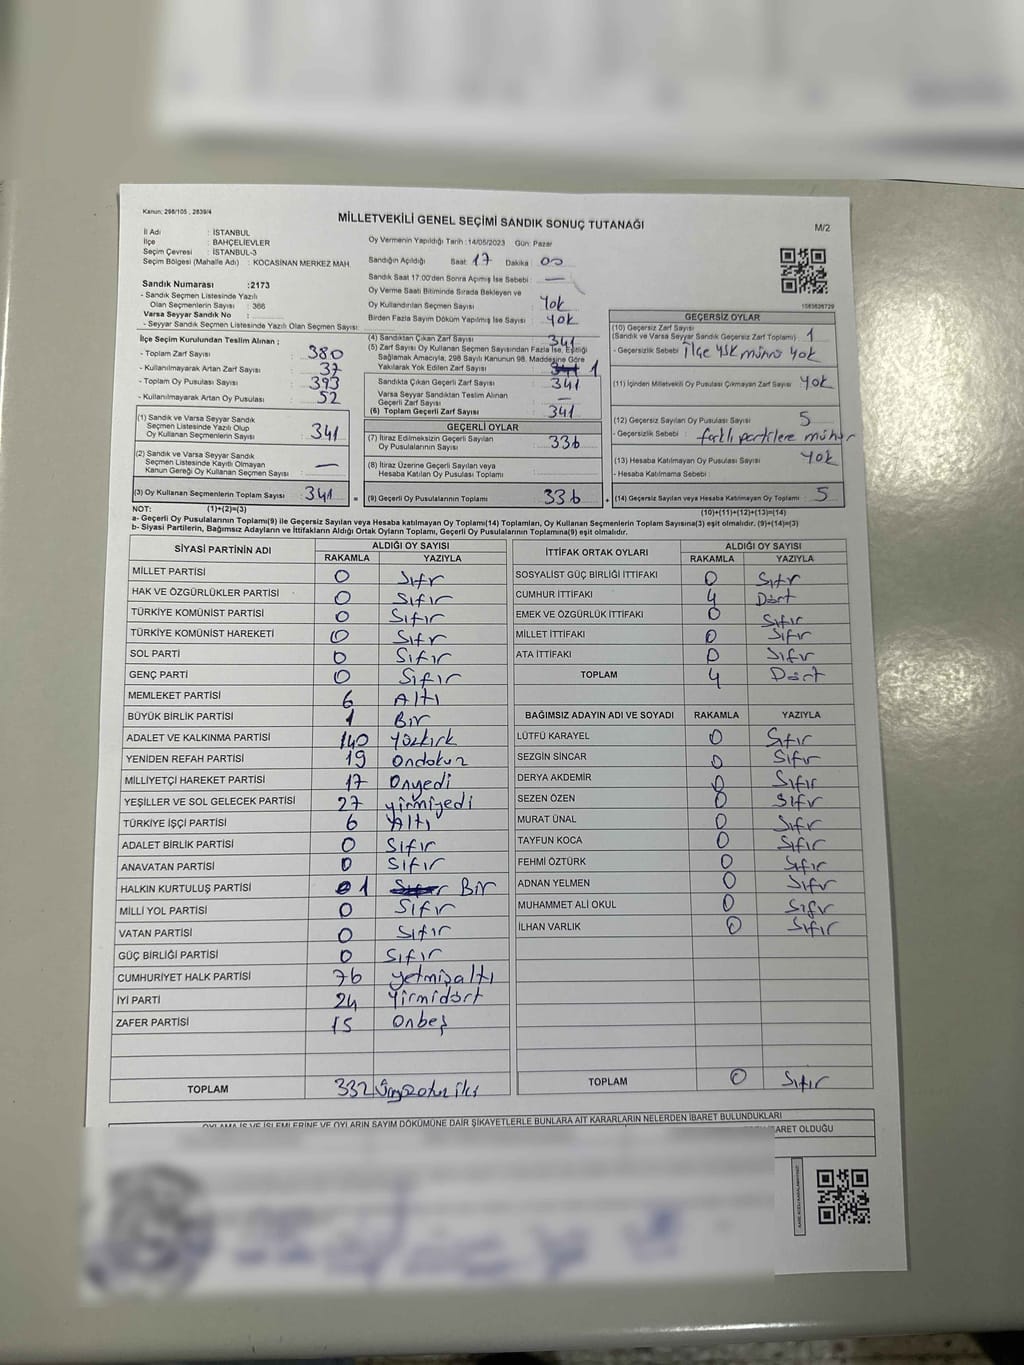 Kanun: 298/105 , 2839/4
MİLLETVEKİLİ GENEL SEÇİMİ SANDIK SONUÇ TUTANAĞI
M/2
İl Adı : İSTANBUL
İlçe : BAHÇELİEVLER
Seçim Çevresi : İSTANBUL-3
Seçim Bölgesi (Mahalle Adı) : KOCASİNAN MERKEZ MAH.
Sandık Numarası :2173
- Sandık Seçmen Listesinde Yazılı
Olan Seçmenlerin Sayısı : 366
Varsa Seyyar Sandık No :
- Seyyar Sandık Seçmen Listesinde Yazılı Olan Seçmen Sayısı:
Oy Vermenin Yapıldığı Tarih :14/05/2023 Gün: Pazar
Sandığın Açıldığı Saat 17 Dakika : 00
Sandık Saat 17:00'den Sonra Açılmış İse Sebebi : —
Oy Verme Saati Bitiminde Sırada Bekleyen ve
Oy Kullandırılan Seçmen Sayısı : Yok
Birden Fazla Sayım Döküm Yapılmış İse Sayısı : Yok
İlçe Seçim Kurulundan Teslim Alınan ;
- Toplam Zarf Sayısı : 380
- Kullanılmayarak Artan Zarf Sayısı : 37
- Toplam Oy Pusulası Sayısı : 393
- Kullanılmayarak Artan Oy Pusulası : 52
(1) Sandık ve Varsa Seyyar Sandık
Seçmen Listesinde Yazılı Olup
Oy Kullanan Seçmenlerin Sayısı : 341
(2) Sandık ve Varsa Seyyar Sandık
Seçmen Listesinde Kayıtlı Olmayan
Kanun Gereği Oy Kullanan Seçmen Sayısı : —
(3) Oy Kullanan Seçmenlerin Toplam Sayısı : 341
(4) Sandıktan Çıkan Zarf Sayısı : 341
(5) Zarf Sayısı Oy Kullanan Seçmen Sayısından Fazla İse, Eşitliği
Sağlamak Amacıyla, 298 Sayılı Kanunun 98. Maddesine Göre
Yakılarak Yok Edilen Zarf Sayısı : 1
Sandıkta Çıkan Geçerli Zarf Sayısı : 341
Varsa Seyyar Sandıktan Teslim Alınan
Geçerli Zarf Sayısı : —
(6) Toplam Geçerli Zarf Sayısı : 341
GEÇERLİ OYLAR
(7) İtiraz Edilmeksizin Geçerli Sayılan
Oy Pusulalarının Sayısı : 336
(8) İtiraz Üzerine Geçerli Sayılan veya
Hesaba Katılan Oy Pusulası Toplamı :
= (9) Geçerli Oy Pusulalarının Toplamı : 336
1583626729
GEÇERSİZ OYLAR
(10) Geçersiz Zarf Sayısı
(Sandık ve Varsa Seyyar Sandık Geçersiz Zarf Toplamı) : 1
- Geçersizlik Sebebi : İlçe YSK mührü yok
(11) İçinden Milletvekili Oy Pusulası Çıkmayan Zarf Sayısı : Yok
(12) Geçersiz Sayılan Oy Pusulası Sayısı : 5
- Geçersizlik Sebebi : farklı partilere mühür
(13) Hesaba Katılmayan Oy Pusulası Sayısı : Yok
- Hesaba Katılmama Sebebi :
+ (14) Geçersiz Sayılan veya Hesaba Katılmayan Oy Toplamı : 5
NOT: (1)+(2)=(3) (10)+(11)+(12)+(13)=(14)
a- Geçerli Oy Pusulalarının Toplamı(9) ile Geçersiz Sayılan veya Hesaba katılmayan Oy Toplamı(14) Toplamları, Oy Kullanan Seçmenlerin Toplam Sayısına(3) eşit olmalıdır. (9)+(14)=(3)
b- Siyasi Partilerin, Bağımsız Adayların ve İttifakların Aldığı Ortak Oyların Toplamı, Geçerli Oy Pusulalarının Toplamına(9) eşit olmalıdır.
SİYASİ PARTİNİN ADI ALDIĞI OY SAYISI
RAKAMLA YAZIYLA
MİLLET PARTİSİ 0 Sıfır
HAK VE ÖZGÜRLÜKLER PARTİSİ 0 Sıfır
TÜRKİYE KOMÜNİST PARTİSİ 0 Sıfır
TÜRKİYE KOMÜNİST HAREKETİ 0 Sıfır
SOL PARTİ 0 Sıfır
GENÇ PARTİ 0 Sıfır
MEMLEKET PARTİSİ 6 Altı
BÜYÜK BİRLİK PARTİSİ 1 Bir
ADALET VE KALKINMA PARTİSİ 140 Yüzkırk
YENİDEN REFAH PARTİSİ 19 Ondokuz
MİLLİYETÇİ HAREKET PARTİSİ 17 Onyedi
YEŞİLLER VE SOL GELECEK PARTİSİ 27 yirmiyedi
TÜRKİYE İŞÇİ PARTİSİ 6 Altı
ADALET BİRLİK PARTİSİ 0 Sıfır
ANAVATAN PARTİSİ 0 Sıfır
HALKIN KURTULUŞ PARTİSİ 0 1 Sıfır Bir
MİLLİ YOL PARTİSİ 0 Sıfır
VATAN PARTİSİ 0 Sıfır
GÜÇ BİRLİĞİ PARTİSİ 0 Sıfır
CUMHURİYET HALK PARTİSİ 76 yetmişaltı
İYİ PARTİ 24 Yirmidört
ZAFER PARTİSİ 15 Onbeş
TOPLAM 332
İTTİFAK ORTAK OYLARI ALDIĞI OY SAYISI
RAKAMLA YAZIYLA
SOSYALİST GÜÇ BİRLİĞİ İTTİFAKI 0 Sıfır
CUMHUR İTTİFAKI 4 Dört
EMEK VE ÖZGÜRLÜK İTTİFAKI 0 Sıfır
MİLLET İTTİFAKI 0 Sıfır
ATA İTTİFAKI 0 Sıfır
TOPLAM 4 Dört
BAĞIMSIZ ADAYIN ADI VE SOYADI RAKAMLA YAZIYLA
LÜTFÜ KARAYEL 0 Sıfır
SEZGİN SİNCAR 0 Sıfır
DERYA AKDEMİR 0 Sıfır
SEZEN ÖZEN 0 Sıfır
MURAT ÜNAL 0 Sıfır
TAYFUN KOCA 0 Sıfır
FEHMİ ÖZTÜRK 0 Sıfır
ADNAN YELMEN 0 Sıfır
MUHAMMET ALİ OKUL 0 Sıfır
İLHAN VARLIK 0 Sıfır
TOPLAM 0 Sıfır
OYLAMA İŞ VE İŞLEMLERİNE VE OYLARIN SAYIM DÖKÜMÜNE DAİR ŞİKAYETLERLE BUNLARA AİT KARARLARIN NELERDEN İBARET BULUNDUKLARI
OLDUĞU